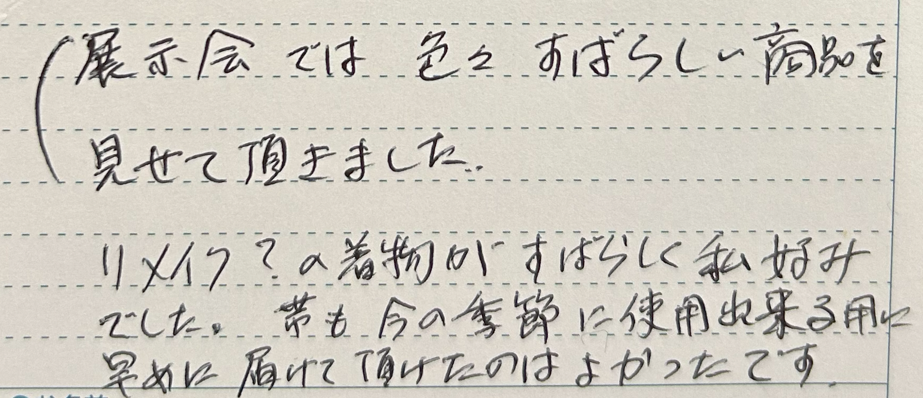 展示会では 色々 すばらしい商品を
見せて頂きました..
リメイク?の着物がすばらしく私好み
でした。帯も今の季節に使用出来る用に
早めに届けて頂けたのはよかったです.